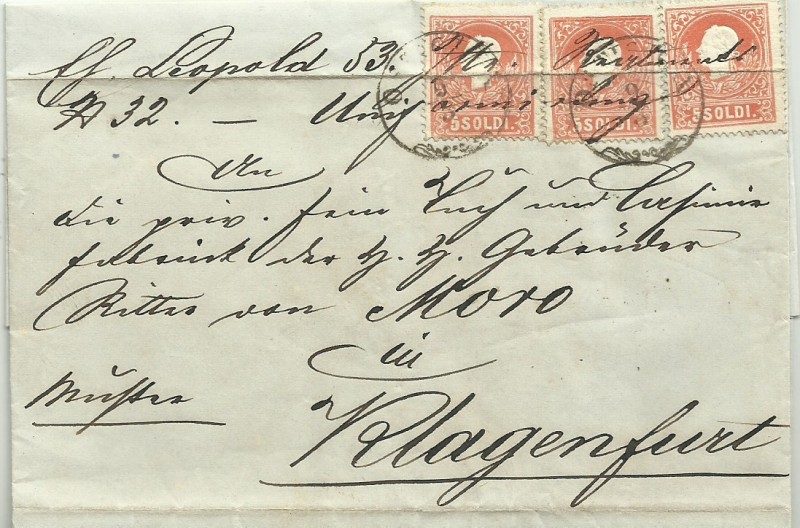 Leopold 53
N 32. — Uniformirung
5 SOLDI.
5 SOLDI.
5 SOLDI.
An
die priv. fein Tuch und Casimir
Fabrick der H. H. Gebrüder
Ritter von Moro
in
Muster
Klagenfurt